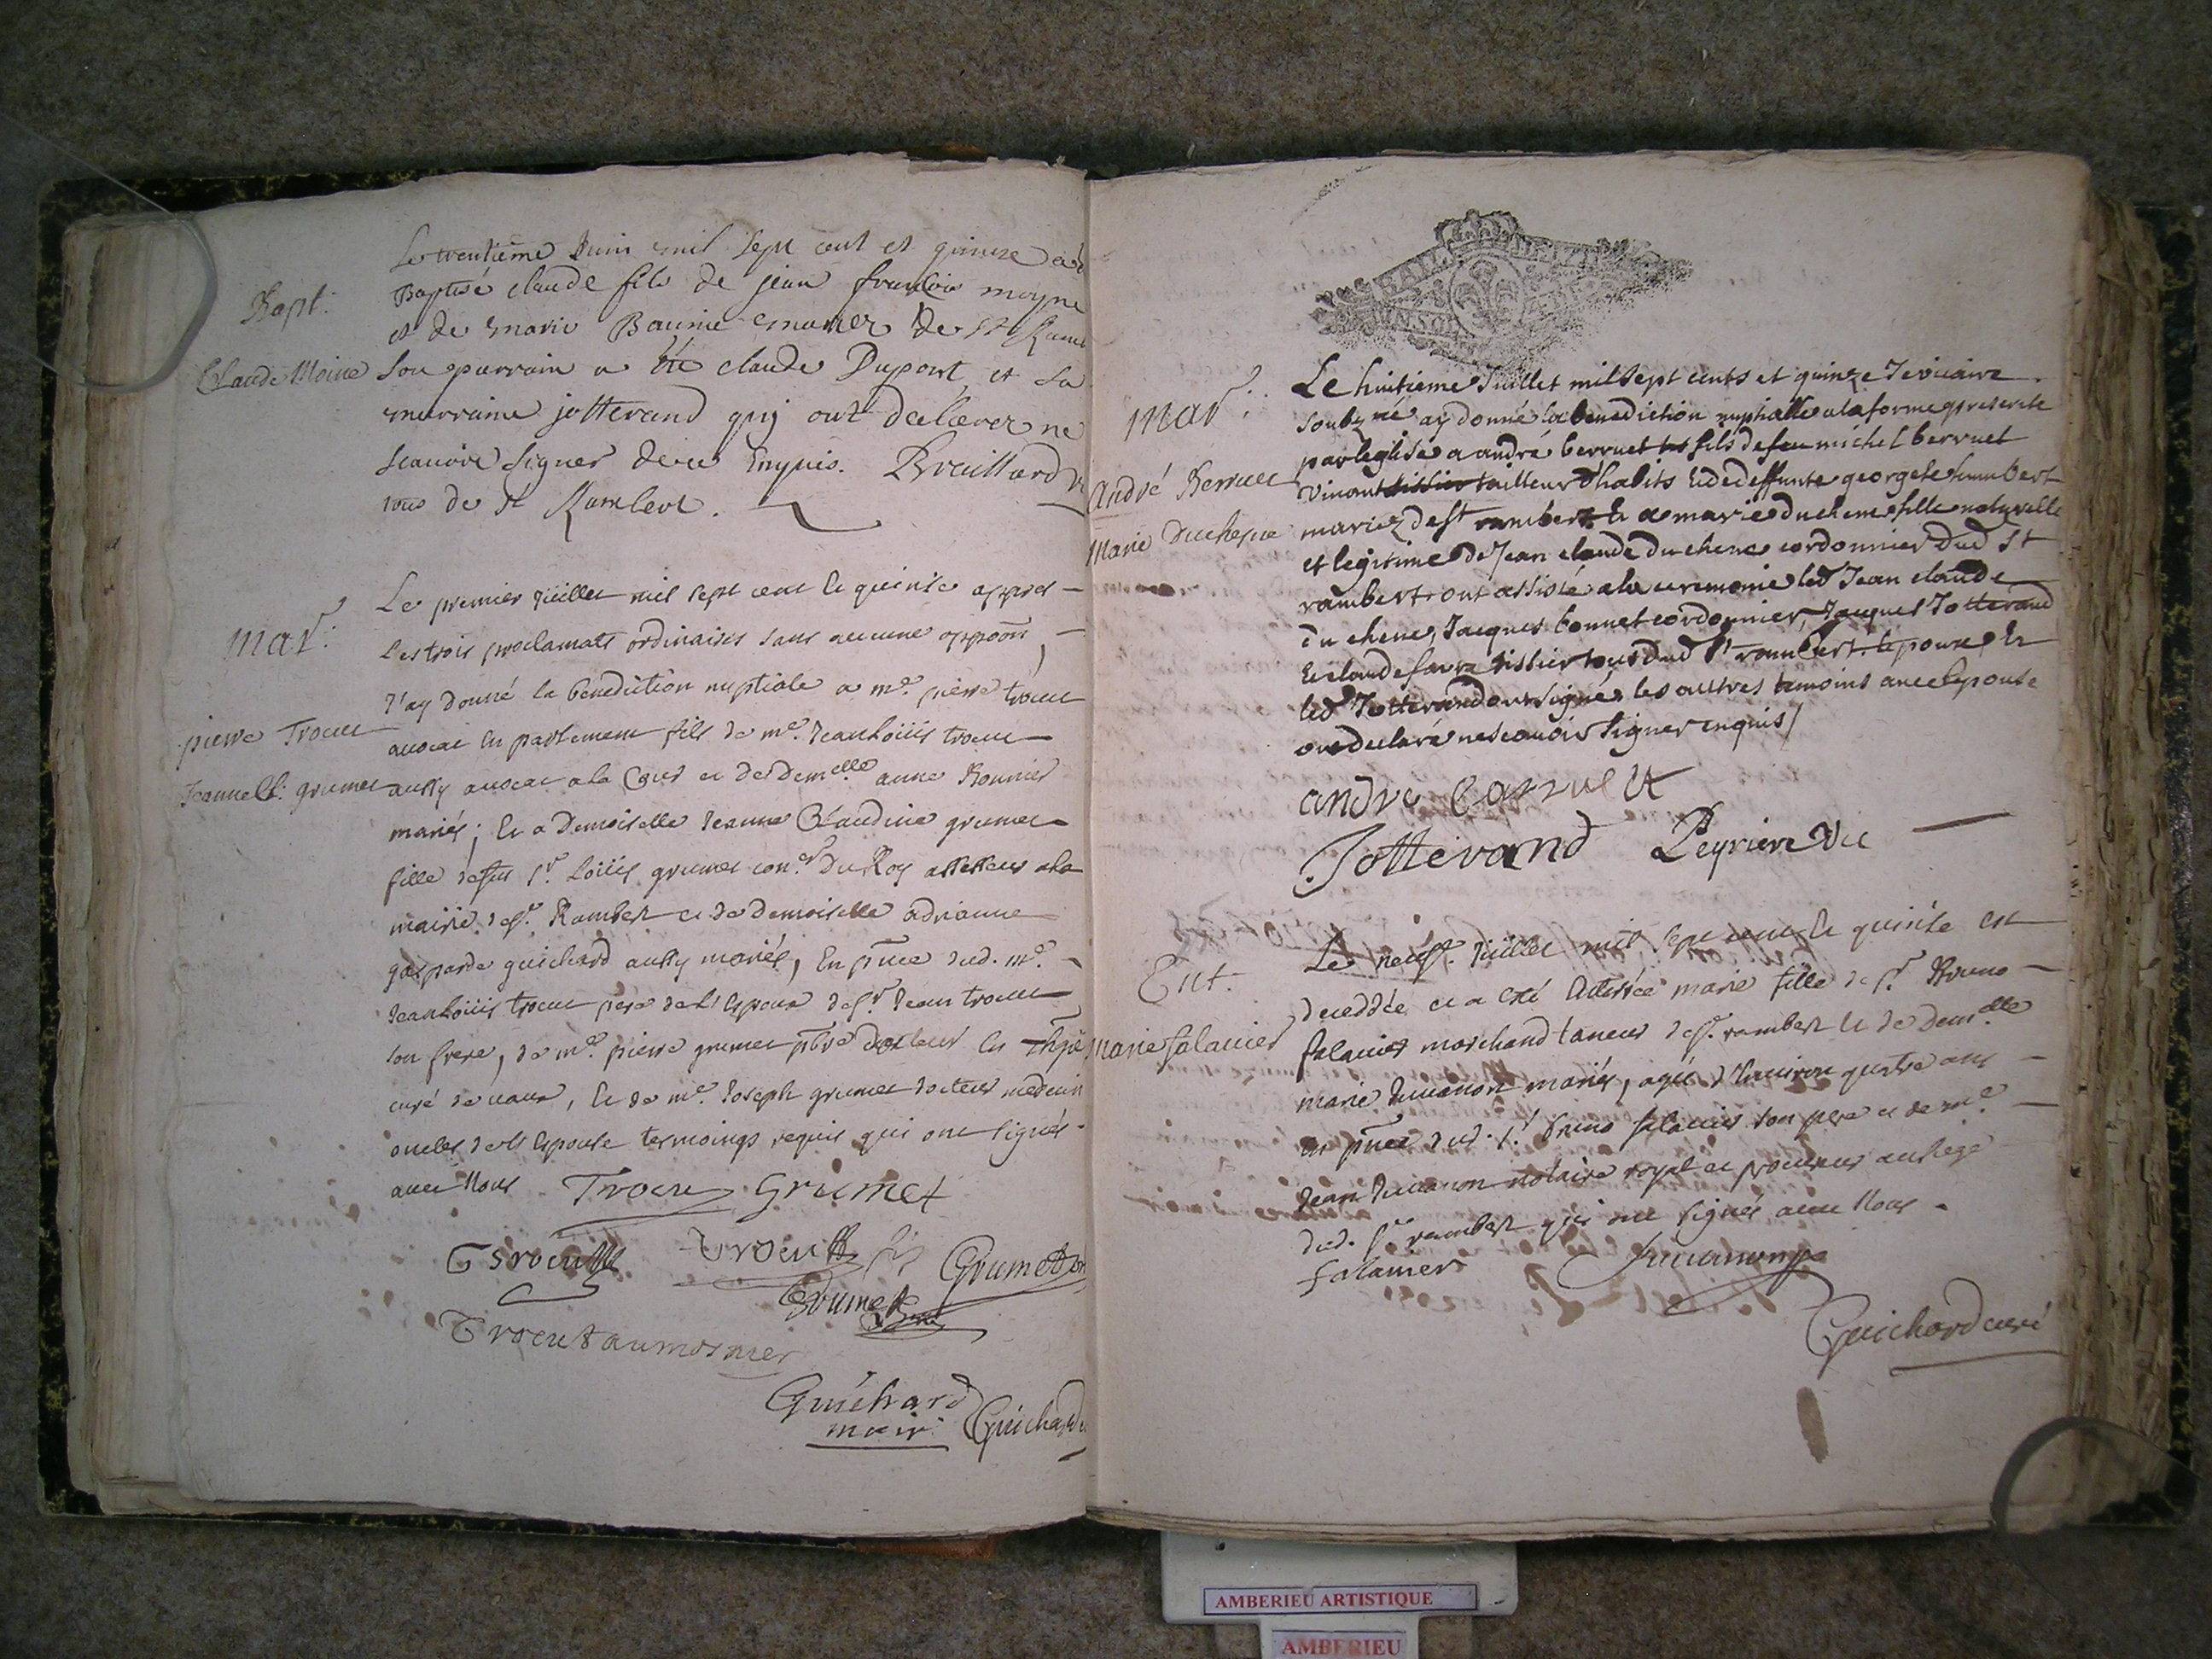 Bapt:
Claude Moine
Le trentieme Juin mil sept cent et quinze a
Baptisé claude fils de jean francois moyne
et de marie Baurie mariez de St Ram
son parrain a été claude Dupont et sa
marraine jotterand quj ont declarer ne
scauoir signer de ce Enquis. Braillard
tous de St Rambert.
mar:
pierre Trocu
Jeanne Cl: grumet
Le premier juillet mil sept cent et quinse appres
les trois proclamats ordinaires sans aucune oppoõn,
J'ay donné la benediction nuptiale a me. pierre trocu
auocat en parlement fils de me. Jean Loüis trocu
aussy auocat a la Cour et de demelle anne Bonnier
mariés; Et a Demoiselle Jeanne Claudine grumet
fille de fut Sr. Loüis grumet conr. Du Roy assesseur a la
mairie de St. Rambert et de demoiselle adrianne
gasparde guichard aussy mariés, En pñce dud. me.
Jean Loüis trocu pere de l'Espoux de Sr. Jean trocu
son frere, de me. pierre grumet pbre docteur en
curé de vaux, Et de me. Joseph grumet docteur medecin
oncles de l'Espouse tesmoings requis qui ont signés
auec Nous Trocu Grumet
Trocu fils Grumet
Grumet
Trocu aumosnier
Guichard
mair: Guichard
mar:
André Berruet
Marie Duchesne
Le huitieme Juillet mil sept cents et quinze Je vicaire
soubzné ay donné la benediction nuptialle a la forme prescrite
par leglise a andré berruet fils de feu michel berruet
vivant tailleur dhabits Et de deffunte georgete humbert
mariez de st rambert Et a marie du chene fille naturelle
et legitime de Jean claude du chene cordonnier dud st
rambert ont assisté a la ceremonie led Jean claude
du chene, Jacques bonnet cordonnier, Jacques Jotterand
Et claude favre tissier tous dud St rambert. lepoux Et
led Jotterand ont signés les autres temoins auec lepouse
ont declaré ne scauoir signer enquis /
andre
Jotterand Peyriere vic
Ent.
Marie falauier
Le neuf. Juillet mil sept cent et quinse est
deceddée et a esté Enterrée marie fille de Sr. Bruno
falauier marchand taneur de St. rambert Et de demelle
marie Juuanon mariés, agée d'Enuiron quatre ans
en pñce dud. Sr. bruno falauier son pere et de me.
Jean Juuanon notaire royal et procureur au siege
dud. St. rambert qui ont signés auec Nous.
falauier Juuanon
Guichard curé
AMBERIEU ARTISTIQUE
AMBERIEU